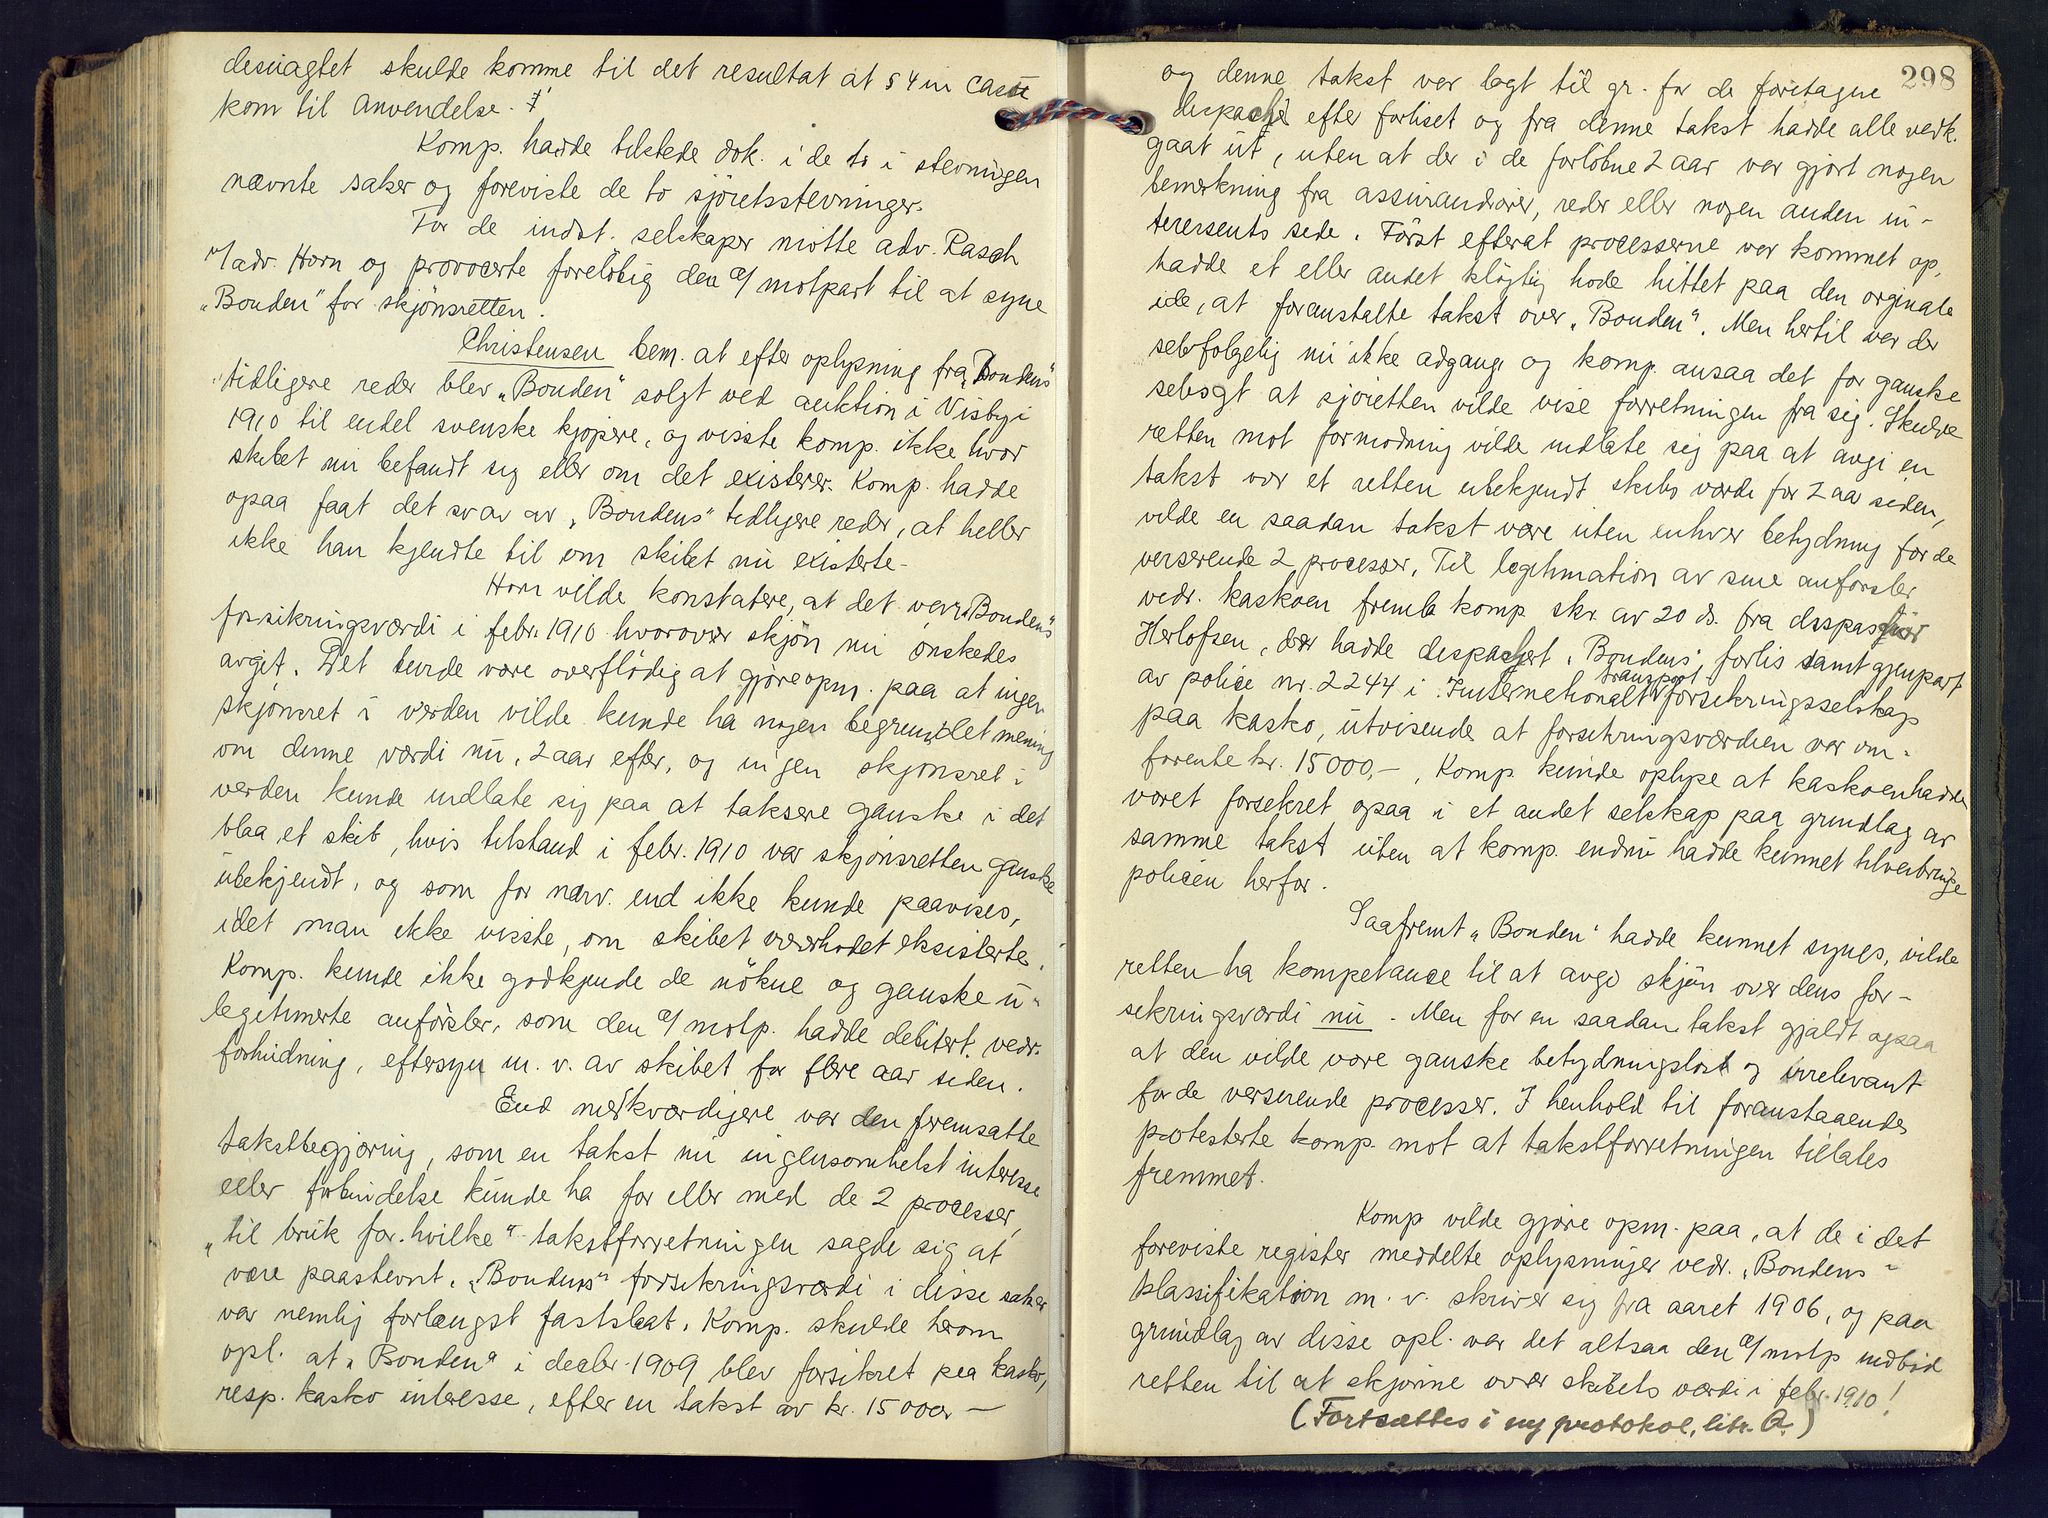 desuagtet skulde komme til det resultat at § 4 in casu
kom til anvendelse.
Komp. hadde tilstede dok. i de to i stevningen
nævnte saker og foreviste de to sjöretsstevninger.
For de indst. selskaper mötte adv. Rasch
v/ adv. Horn og provocerte forelöbig den a/ motpart til at syne
"Bonden" for skjönsretten.
Christensen bem. at efter oplysning fra "Bondens"
tidligere reder blev "Bonden" solgt ved auktion i Visby i
1910 til endel svenske kjöpere, og visste komp. ikke hvor
skibet nu befandt sig eller om det existerer. Komp. hadde
opaa faat det svar av "Bondens" tidligere reder, at heller
ikke han kjendte til om skibet nu existerte.
Horn vilde konstatere, at det var "Bondens"
forsikringsværdi i febr. 1910 hvorover skjön nu önskedes
avgit. Det turde være overflödig at gjöre opm. paa at ingen
skjönsret i verden vilde kunde ha nogen begrundet mening
om denne værdi nu, 2 aar efter, og ingen skjönsret i
verden kunde indlate sig paa at taksere ganske i det
blaa et skib, hvis tilstand i febr. 1910 var skjönsretten ganske
ubekjendt, og som for nærv. end ikke kunde paavises,
idet man ikke visste, om skibet overhodet eksisterte.
Komp. kunde ikke godkjende de nökne og ganske u-
legitimerte anförsler, som den a/ motp. hadde debitert vedr.
forhudning, eftersyn m. v. av skibet for flere aar siden.
End merkværdigere var den fremsatte
takstbegjæring, som en takst nu ingensomhelst interesse
eller forbindelse kunde ha for eller med de 2 processer,
"til bruk for hvilke" takstforretningen sagde sig at
være paastevnt. "Bondens" forsikringsværdi i disse saker
var nemlig forlængst fastslaat. Komp. skulde herom
opl. at "Bonden" i decbr. 1909 blev forsikret paa kasko,
resp. kasko interesse, efter en takst av kr. 15 000 —
298
og denne takst var lagt til gr. for de foretagne
despache efter forliset og fra denne takst hadde alle vedk.
gaat ut, uten at der i de forlöbne 2 aar var gjort nogen
bemerkning fra assurandörer, reder eller nogen anden in-
teressents side. Först efterat processerne var kommet op,
hadde et eller andet klögtig hode hittet paa den orginale
ide, at foranstalte takst over "Bonden". Men hertil var der
selvfölgelig nu ikke adgang og komp. ansaa det for ganske
selvsagt at sjöretten vilde vise forretningen fra sig. Skulde
retten mot formodning vilde indlate sig paa at avgi en
takst over et retten ubekjendt skibs værdi for 2 aar siden,
vilde en saadan takst være uten enhver betydning for de
verserende 2 processer. Til legitimation av sine anförsler
vedr. kaskoen fremla komp. skr. av 20 ds. fra despasjör
Herlofsen, der hadde despachert "Bondens" forlis samt gjenpart
av police nr. 2244 i "Internationalt transport forsikringsselskap
paa kasko, utvisende at forsikringsværdien var om-
forente kr. 15000,—. Komp. kunde oplyse at kaskoen hadde
været forsekret opaa i et andet selskap paa grundlag av
samme takst uten at komp. endnu hadde kunnet tilveibringe
policen herfor.
Saafremt "Bonden" hadde kunnet synes, vilde
retten ha kompetanse til at avgi skjön over dens for-
sekringsværdi nu. Men for en saadan takst gjaldt opaa
at den vilde være ganske betydningslöst og irrelevant
for de verserende processer. I henhold til foranstaaende
protesterte komp. mot at takstforretningen tillates
fremmet.
Komp vilde gjöre opm. paa, at de i det
foreviste register meddelte oplysninger vedr. "Bondens"
klassifikation m. v. skriver sig fra aaret 1906, og paa
grundlag av disse opl. var det altsaa den a/ motp indböd
retten til at skjönne over skibets værdi i febr. 1910!
(Fortsættes i ny protokol, litr. Q.)